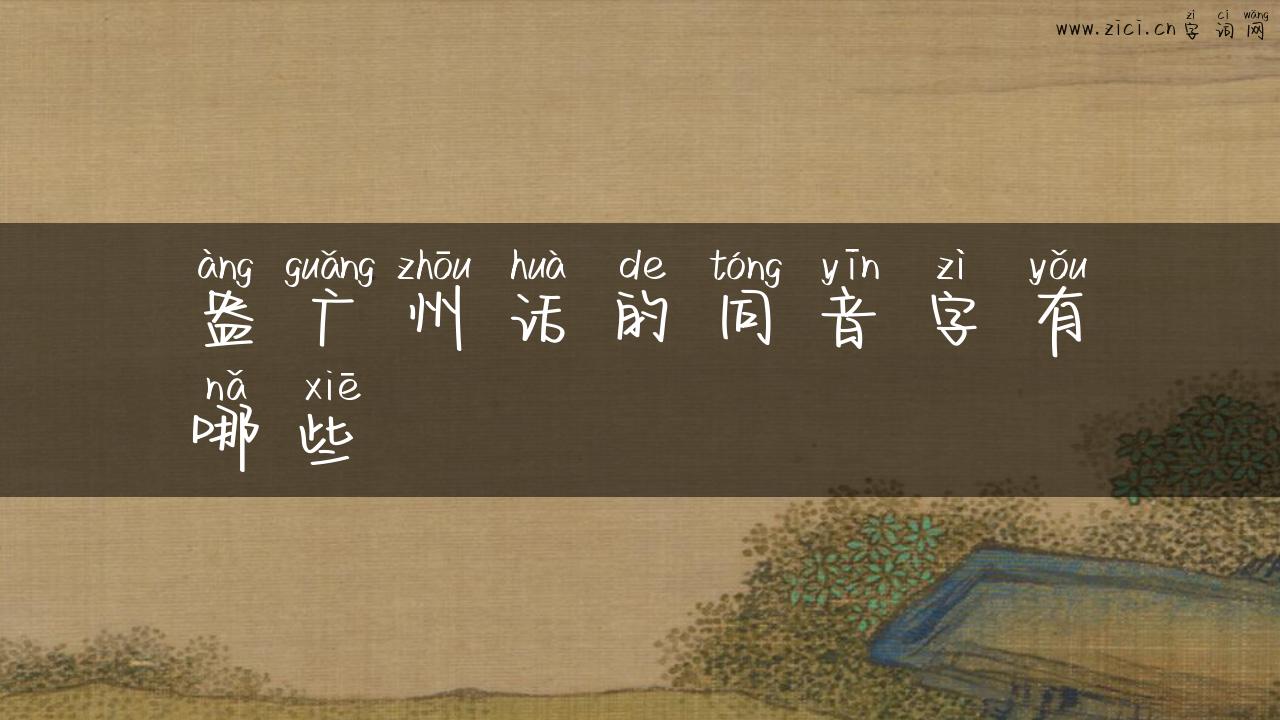 zì cí wǎng
www.zici.cn 字词网
àng guǎng zhōu huà de tóng yīn zì yǒu
盎广州话的同音字有
nǎ xiē
哪些